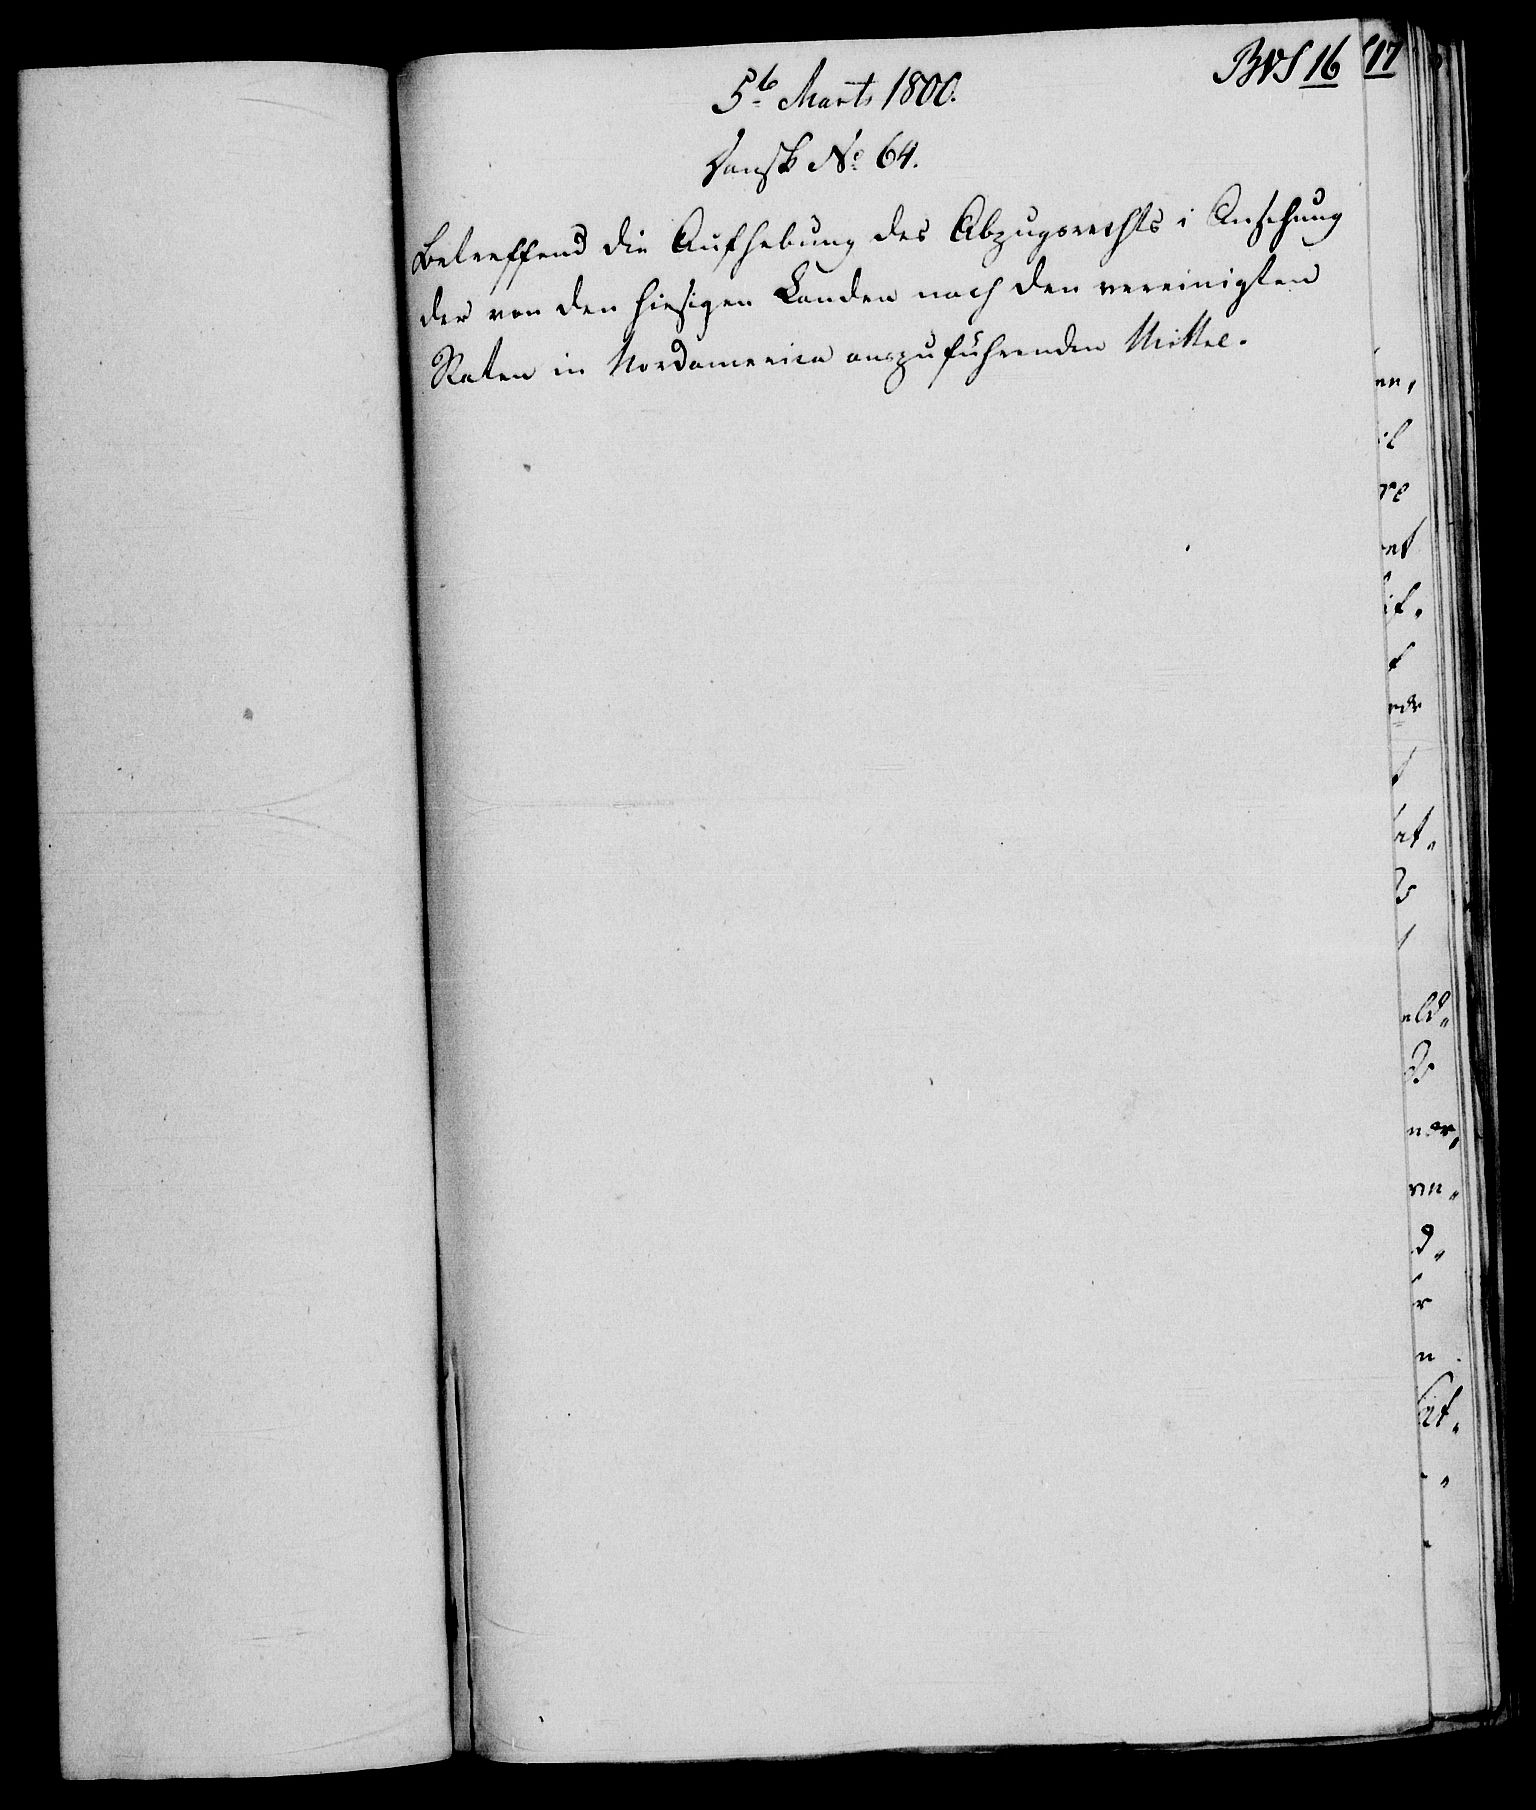 BVS 16
5te Marts 1800.
Dansk No 64.
Betreffend die Aufhebung des Abzugsrechts i Ansehung
der von den hiesigen Landen nach den vereinigten
Staten in Nordamerica auszuführenden Mittel.
17